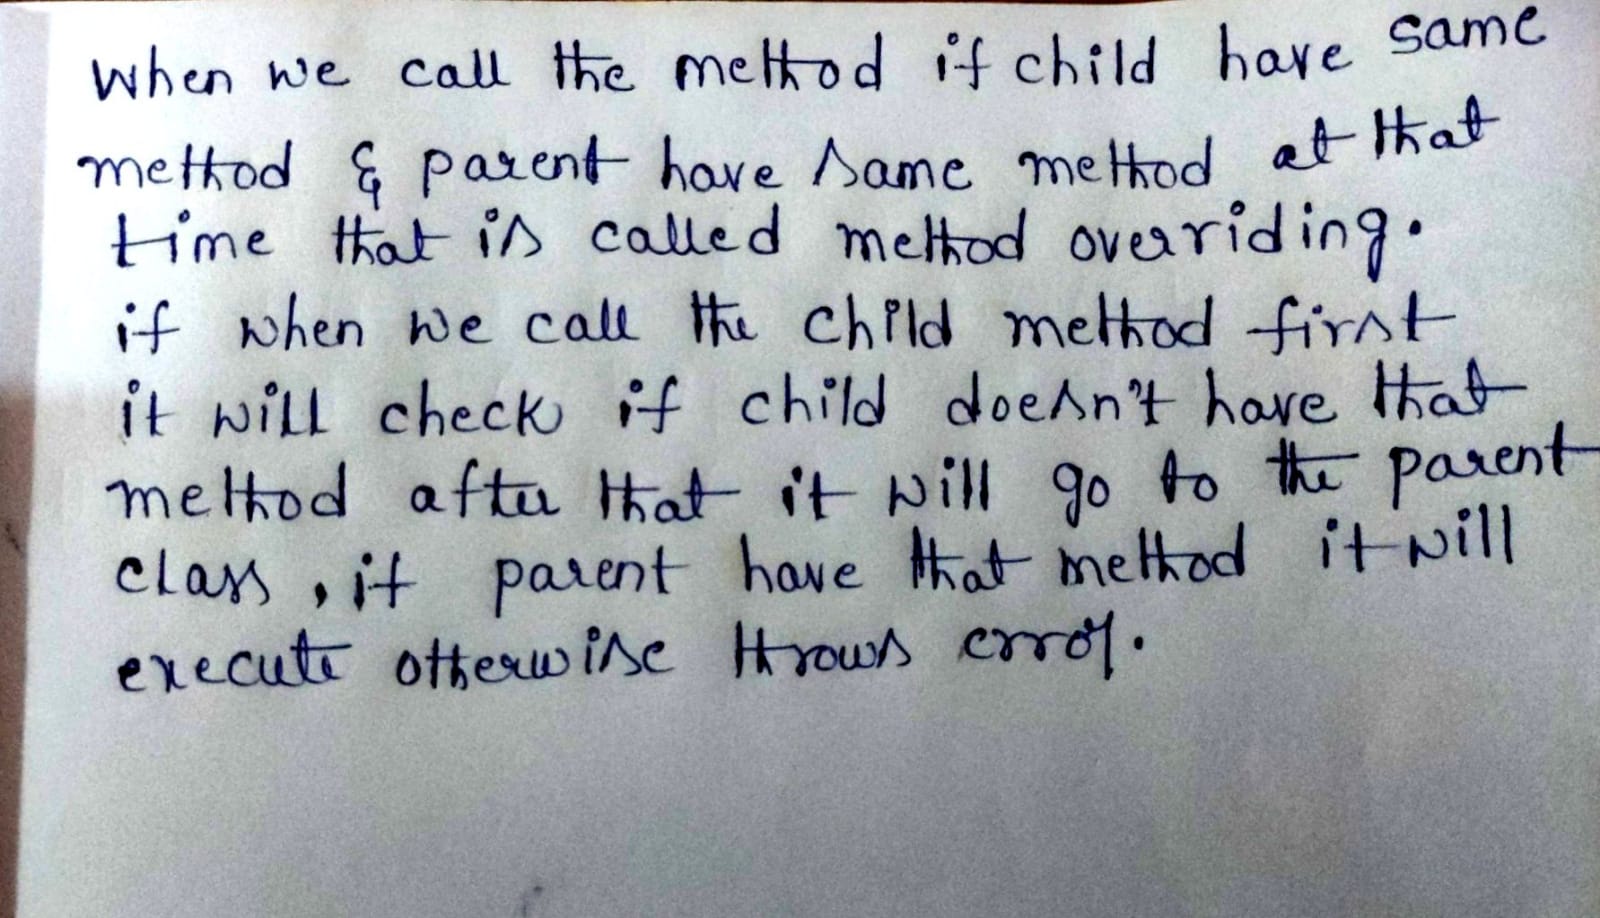 When we call the method if child have same
method & parent have same method at that
time that is called method overriding.
if when we call the child method first
it will check if child doesn't have that
method after that it will go to the parent
class, if parent have that method it will
execute otherwise throws error.